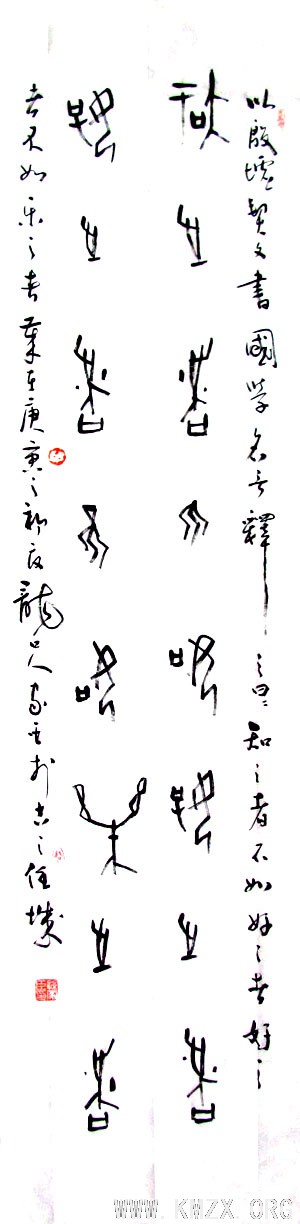 以殷墟契文書國學名言釋之曰知之者不如好之者好之
知之者不如好之者
好之者不如樂之者
者不如乐之者 在庚寅之初 龍口人